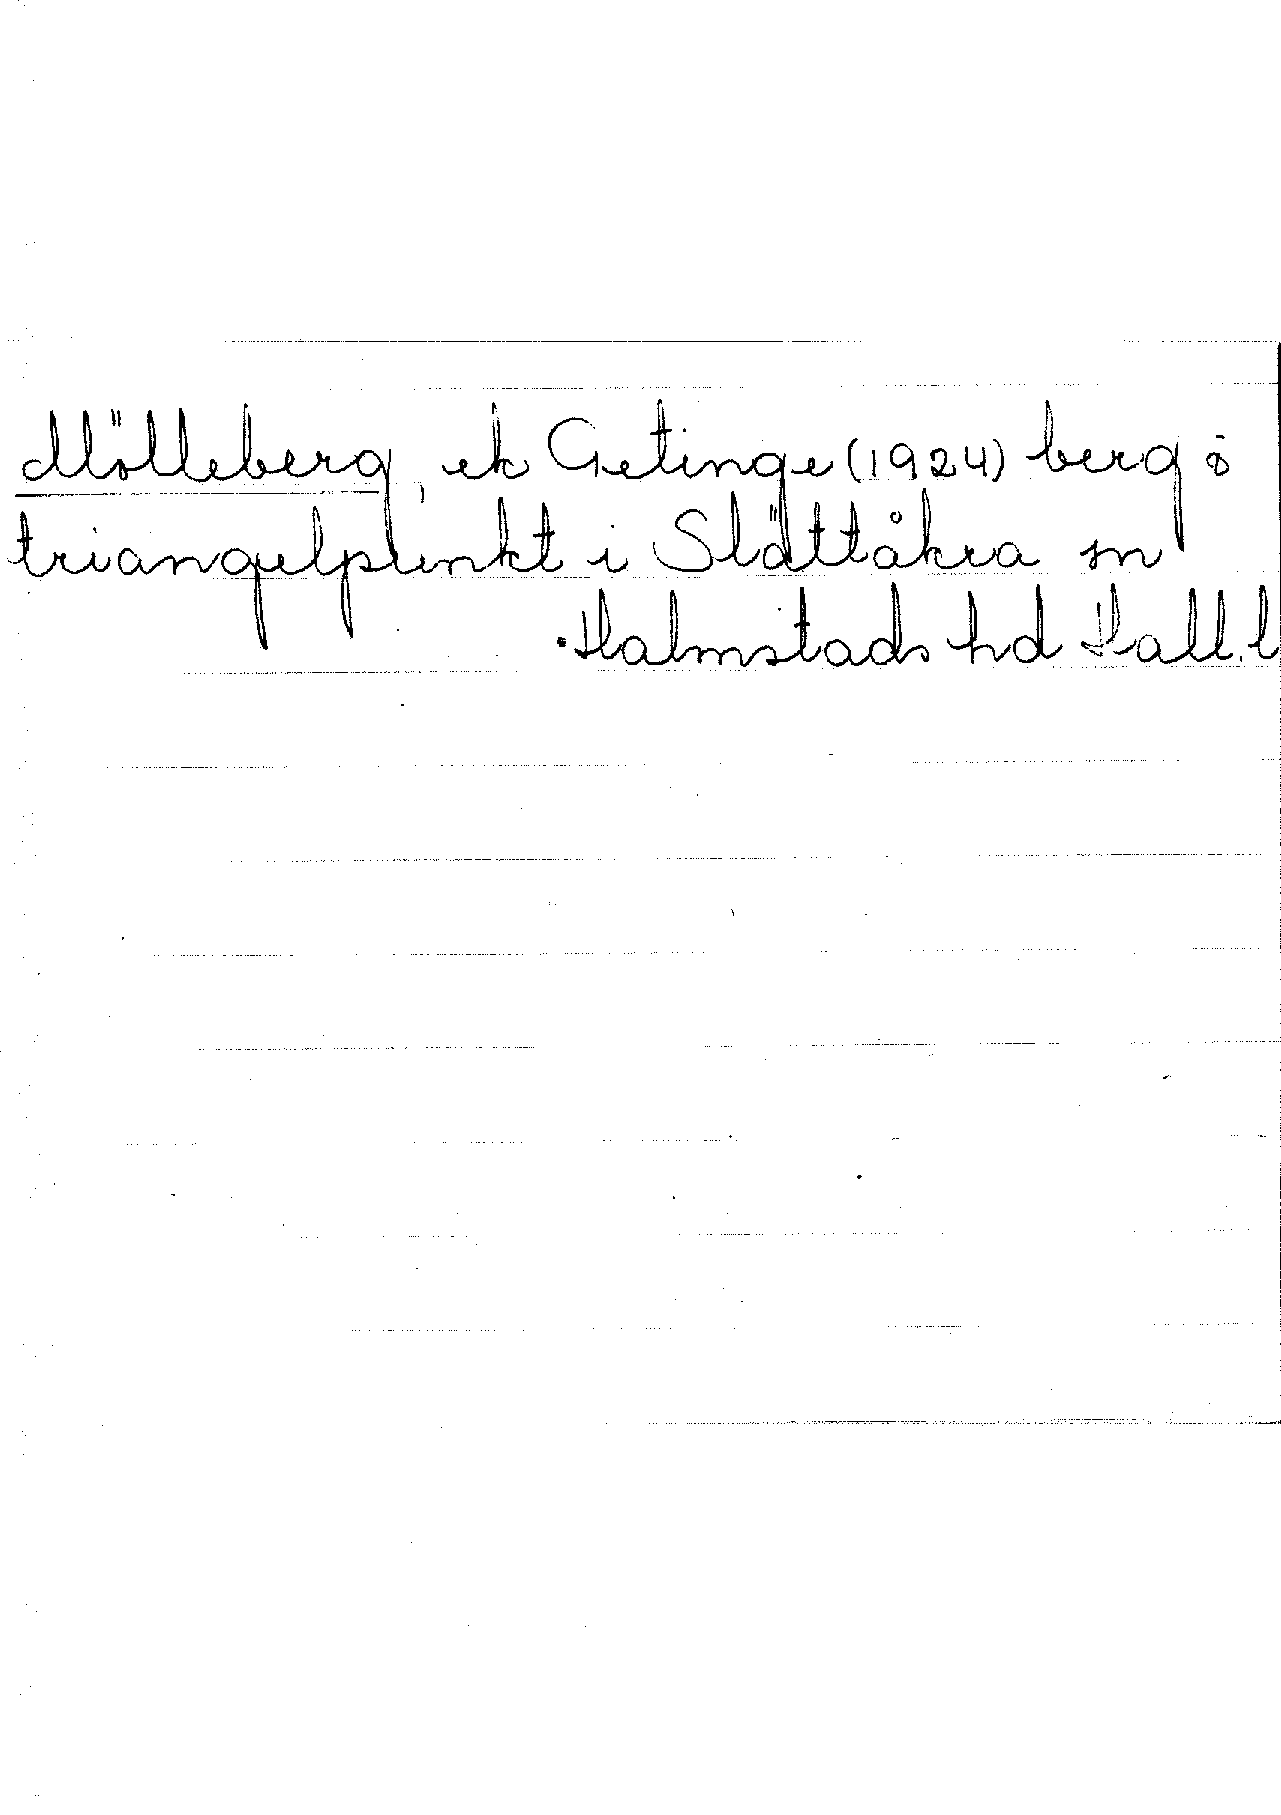 Mölleberg, ek Getinge (1924) berg o
triangelpunkt i Slättåkra sn
Halmstads hd Hall. l